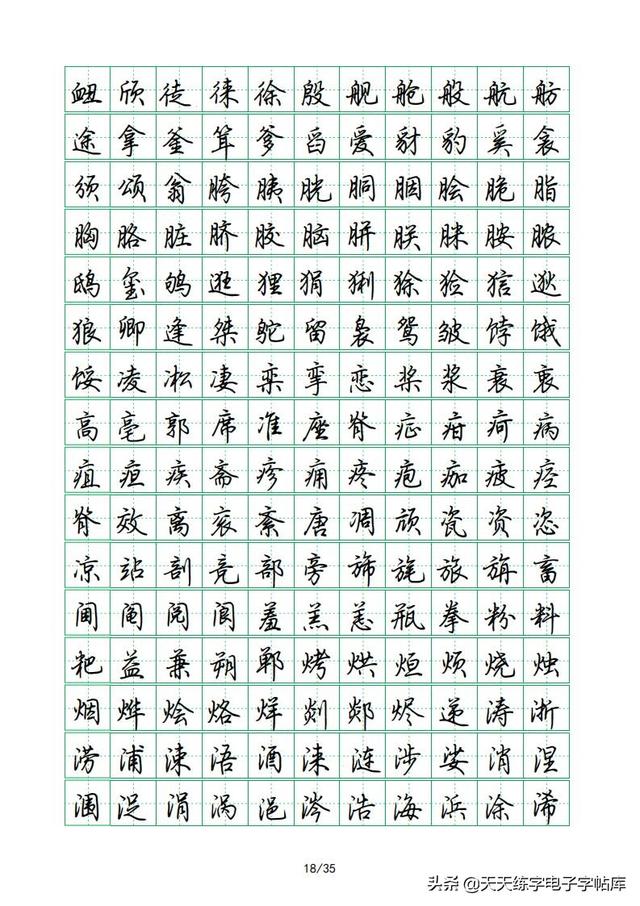 衄颀徒徕徐殷舰舱般航舫
途拿釜耸爹舀爱豺豹奚衾
颁颂翁胯胰胱胴胭脍脆脂
胸胳脏脐胶脑胼朕脒胺脓
鸱玺鸲逛狸狷猁狳猃狺逖
狼卿逢桀鸵留袅鸳皱饽饿
馁凌凇凄栾挛恋桨浆衰衷
高亳郭席准座脊症疳疴病
疽疸疾斋疹痈疼疱痂疲痉
脊效离衮紊唐凋颃瓷资恣
凉站剖竞部旁旆旄旅旃畜
阃阄阅阆羞羔恙瓶拳粉料
粑益兼朔郸烤烘烜烦烧烛
烟烨烩烙烊剡郯烬递涛浙
涝浦涑浯酒涞涟涉娑消涅
涠浞涓涡浥涔浩海浜涂浠
18/35
头条 @天天练字电子字帖库